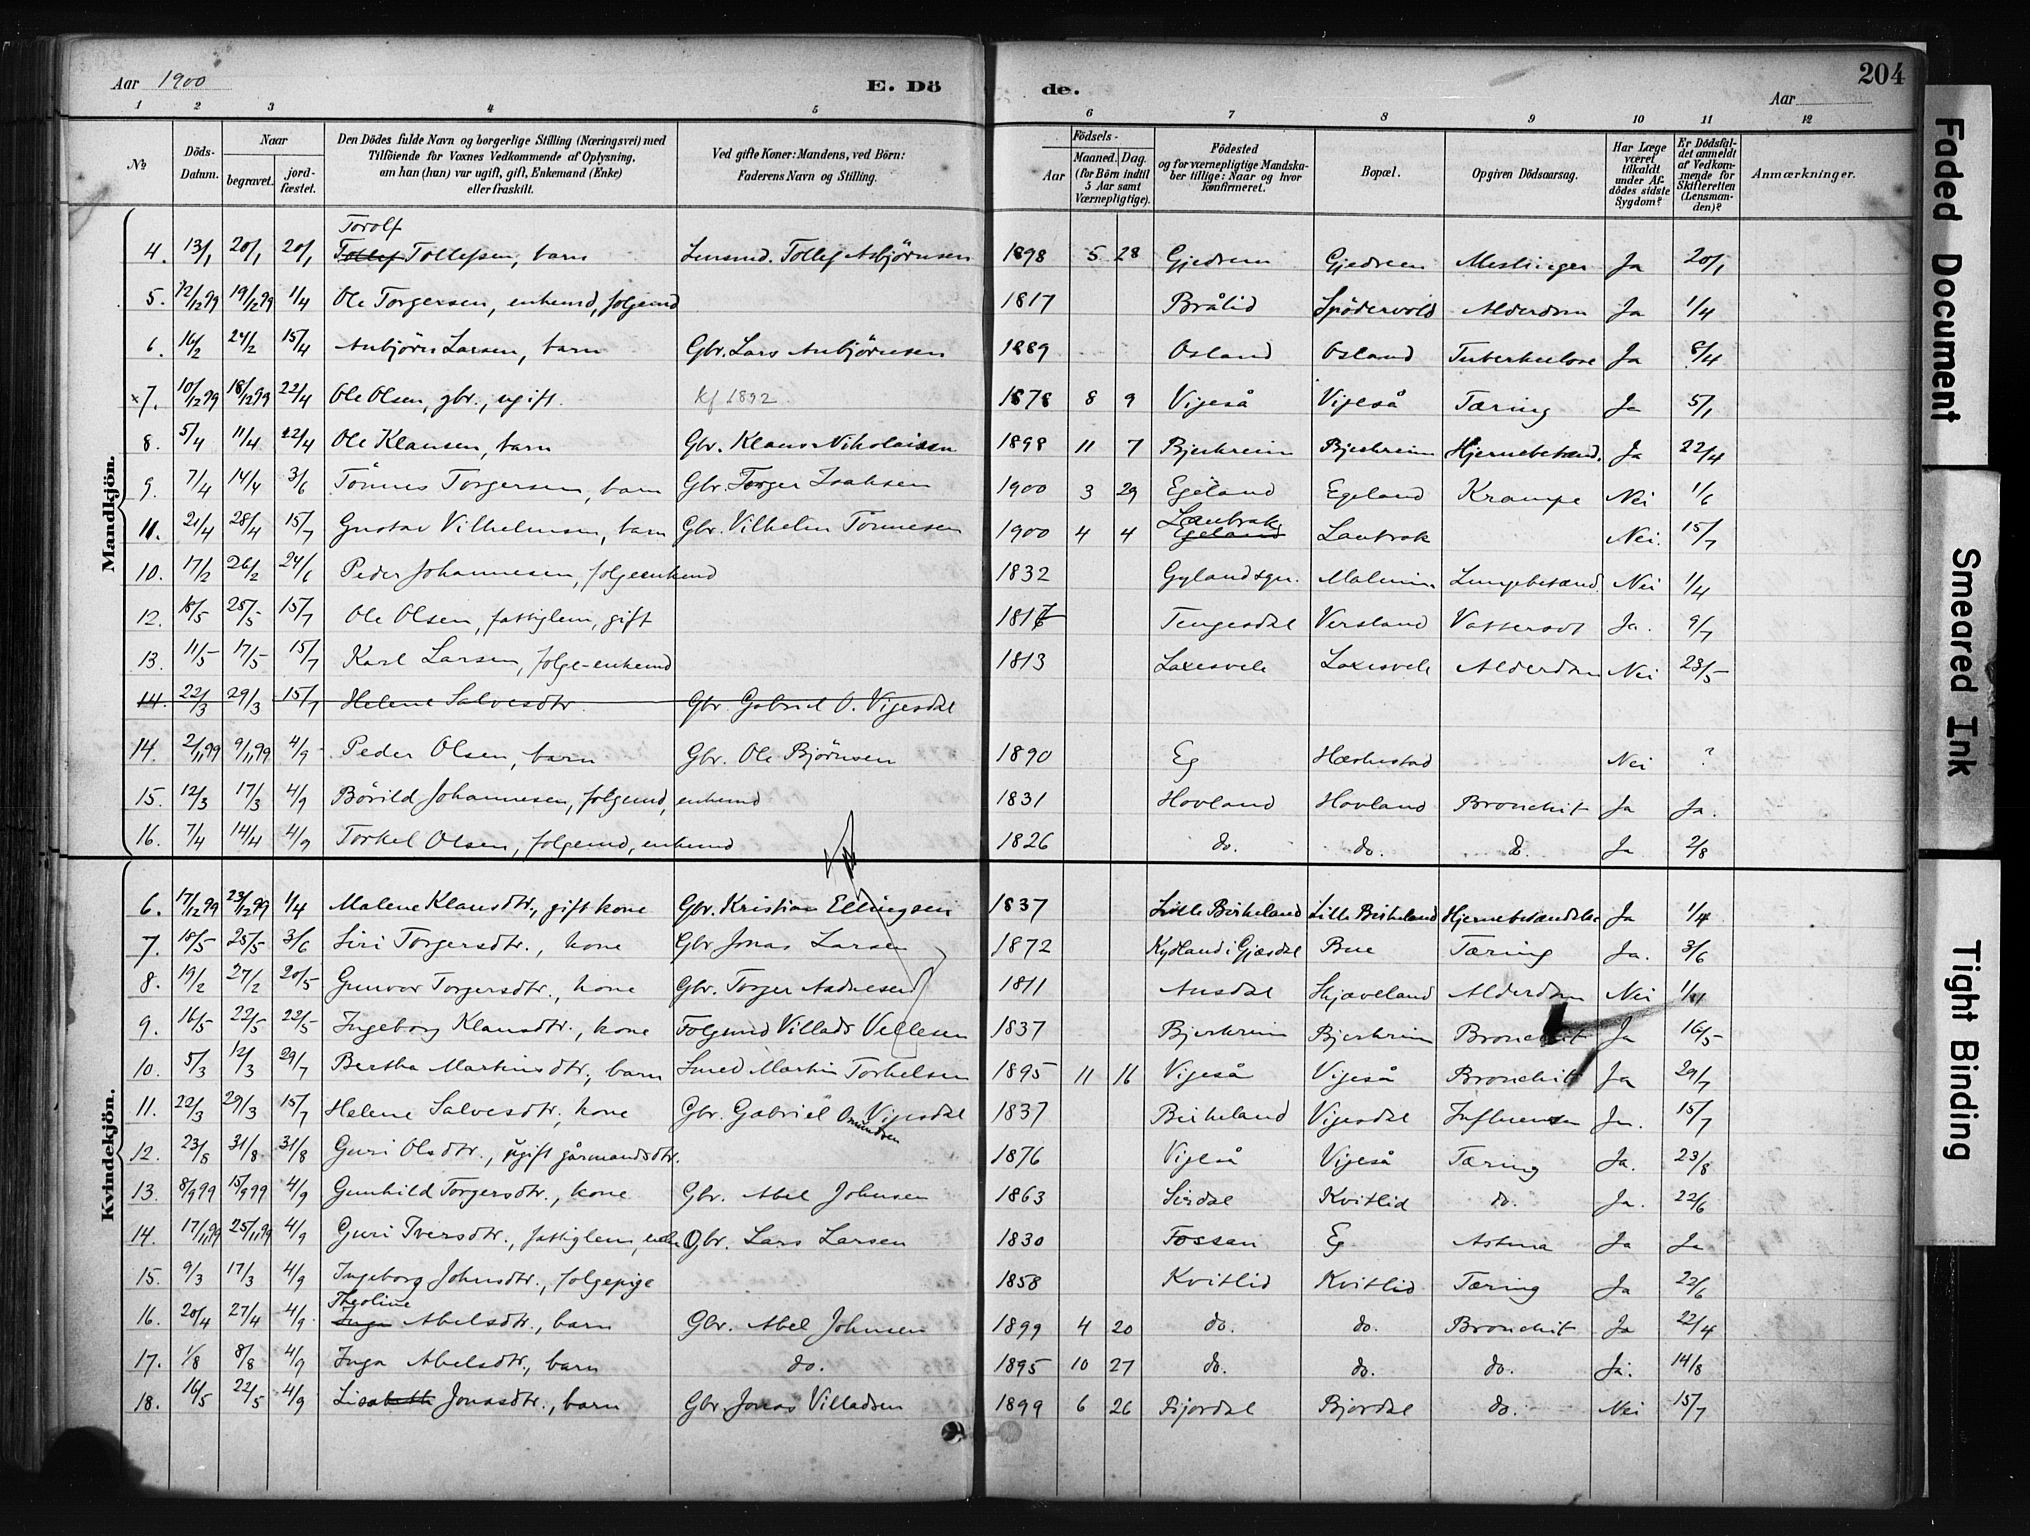 204
Aar 1900 E. Dö de. Aar
1 2 3 4 5 6 7 8 9 10 11 12
№ Döds-Datum. Naar begravet. jord-fæstet. Den Dödes fulde Navn og borgerlige Stilling (Næringsvei) med Tilföiende for Voxnes Vedkommende af Oplysning, om han (hun) var ugift, gift, Enkemand (Enke) eller fraskilt. Ved gifte Koner: Mandens, ved Börn: Faderens Navn og Stilling. Födsels- Aar Maaned. Dag. (for Börn indtil 5 Aar samt Værnepligtige). Födested og for værnepligtige Mandskaber tillige: Naar og hvor Konfirmeret. Bopæl. Opgiven Dödsaarsag. Har Læge været tilkaldt under Afdödes sidste Sygdom? Er Dödsfaldet anmeldt af Vedkommende for Skifteretten (Lensmanden)? Anmærkninger.
Mandkjön.
Torolf
4. 13/1 20/1 20/1 Tollef Tollefsen, barn Lensmd. Tollef Asbjörnsen 1898 5 28 Gjedrem Gjedrem Meslinger Ja 20/1
5. 12/12 99 19/12 99 1/4 Ole Torgersen, enkemd, folgemd 1817 Brålid Spödervold Alderdom Ja 1/4
6. 16/2 24/2 15/4 Anbjörn Larsen, barn Gbr. Lars Anbjörnsen 1889 Osland Osland Tuberkulose Ja 8/4
x7. 10/12 99 18/12 99 22/4 Ole Olsen, gbr., ugift. kf 1892 1878 8 9 Vigeså Vigeså Tæring Ja 5/1
8. 5/4 11/4 22/4 Ole Klausen, barn Gbr. Klaus Nikolaisen 1898 11 7 Bjerkreim Bjerkreim Hjernebetænd. Ja 22/4
9. 7/4 14/4 3/6 Tönnes Torgersen, barn Gbr. Torger Isaksen 1900 3 29 Egeland Egeland Krampe Nei 1/6
Lautvok
11. 21/4 28/4 15/7 Gustav Vilhelmsen, barn Gbr. Vilhelm Tönnesen 1900 4 4 Egeland Lautvok Nei. 15/7
10. 17/2 26/2 24/6 Peder Johannesen, folgeenkemd 1832 Gylandsgn. Malmim Lungebetænd. Nei 1/4
12. 18/5 25/5 15/7 Ole Olsen, fattiglem, gift 1817 Tengesdal Versland Vattersot Ja. 9/7
13. 11/5 17/5 15/7 Karl Larsen, folge-enkemd 1813 Laxesvele Laxesvele Alderdom Nei 23/5
14. 22/3 29/3 15/7 Helene Salvesdtr. Gbr. Gabriel O. Vigesdal
14. 2/11 99 9/11 99 4/9 Peder Olsen, barn Gbr. Ole Björnsen 1890 Eg Hærhestad Nei ?
15. 12/3 17/3 4/9 Börild Johannesen, folgemd, enkemd 1831 Hovland Hovland Bronchit Ja Ja.
16. 7/4 14/4 4/9 Torkel Olsen, folgemd, enkemd 1826 do. do. do. Ja 2/8
Kvindekjön.
6. 17/12 99 23/12 99 1/4 Malene Klausdtr., gift kone Gbr. Kristian Ellingsen 1837 Lille Birkeland Lille Birkeland Hjernebetændelse Ja 1/4
7. 18/5 25/5 3/6 Siri Torgersdtr., kone Gbr Jonas Larsen 1872 Kydland i Gjæsdal Bue Tæring Ja. 3/6
8. 19/2 27/2 20/5 Gunvor Torgersdtr., kone Gbr. Torger Aadnesen 1811 Ausdal Skjæveland Alderdom Nei
9. 16/5 22/5 22/5 Ingeborg Klausdtr., kone Folgemd Villads Vellesen 1837 Bjerkreim Bjerkreim Bronchit Ja 16/5
10. 5/3 12/3 29/7 Bertha Martinsdtr., barn Smed Martin Torkelsen 1895 11 16 Vigeså Vigeså Bronchit Ja 29/7
11. 22/3 29/3 15/7 Helene Salvesdtr., kone Gbr. Gabriel Omundsen Vigesdal 1837 Birkeland Vigesdal Influensa Ja. 15/7
12. 23/8 31/8 31/8 Guri Olsdtr., ugift gårmandsdtr. 1876 Vigeså Vigeså Tæring Ja. 23/8
13. 8/9 99 15/9 99 4/9 Gunhild Torgersdtr., kone Gbr. Abel Johnsen 1863 Sirdal Kvitlid do. Ja. 22/6
14. 17/11 99 25/11 99 4/9 Guri Iversdtr., fattiglem, enke Gbr. Lars Larsen 1830 Fossan Eg Astma Ja Ja
15. 9/3 17/3 4/9 Ingeborg Johnsdtr., folgepige 1858 Kvitlid Kvitlid Tæring Ja 22/6
Theoline
16. 20/4 27/4 4/9 Inga Abelsdtr., barn Gbr. Abel Johnsen 1899 4 20 do. do. Bronchit Ja 22/4
17. 1/8 8/8 4/9 Inga Abelsdtr., barn do. 1895 10 27 do. do. do. Ja. 14/8
18. 16/5 22/5 4/9 Lisabeth Jonasdtr., barn Gbr. Jonas Villadsen 1899 6 26 Bjordal Bjordal do. Nei 15/7
Faded Document
Smeared Ink
Tight Binding